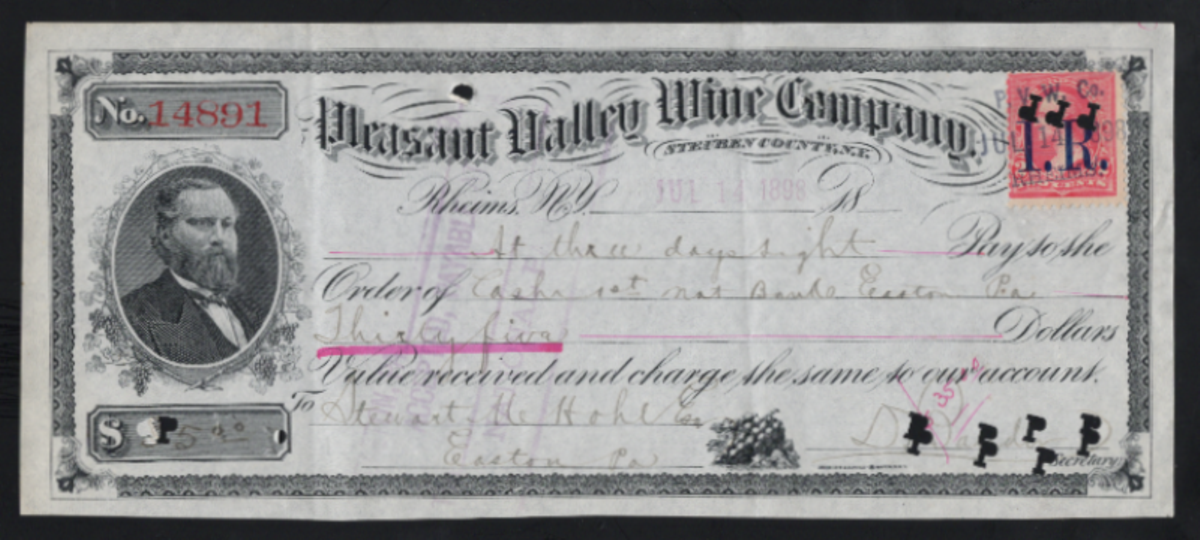 No. 14891
Pleasant Valley Wine Company,
STEUBEN COUNTY, N.Y.
P. V. W. Co.
JUL 14 1898
I. R.
Rheims, N.Y. JUL 14 1898 18
At three days sight Pay to the
Order of Cashr 1st Nat Bank Easton Pa
Thirty five Dollars
Value received and charge the same to our account.
35 00
To Stewart H Hohl Esq
$ 35 00
Easton Pa
Secretary